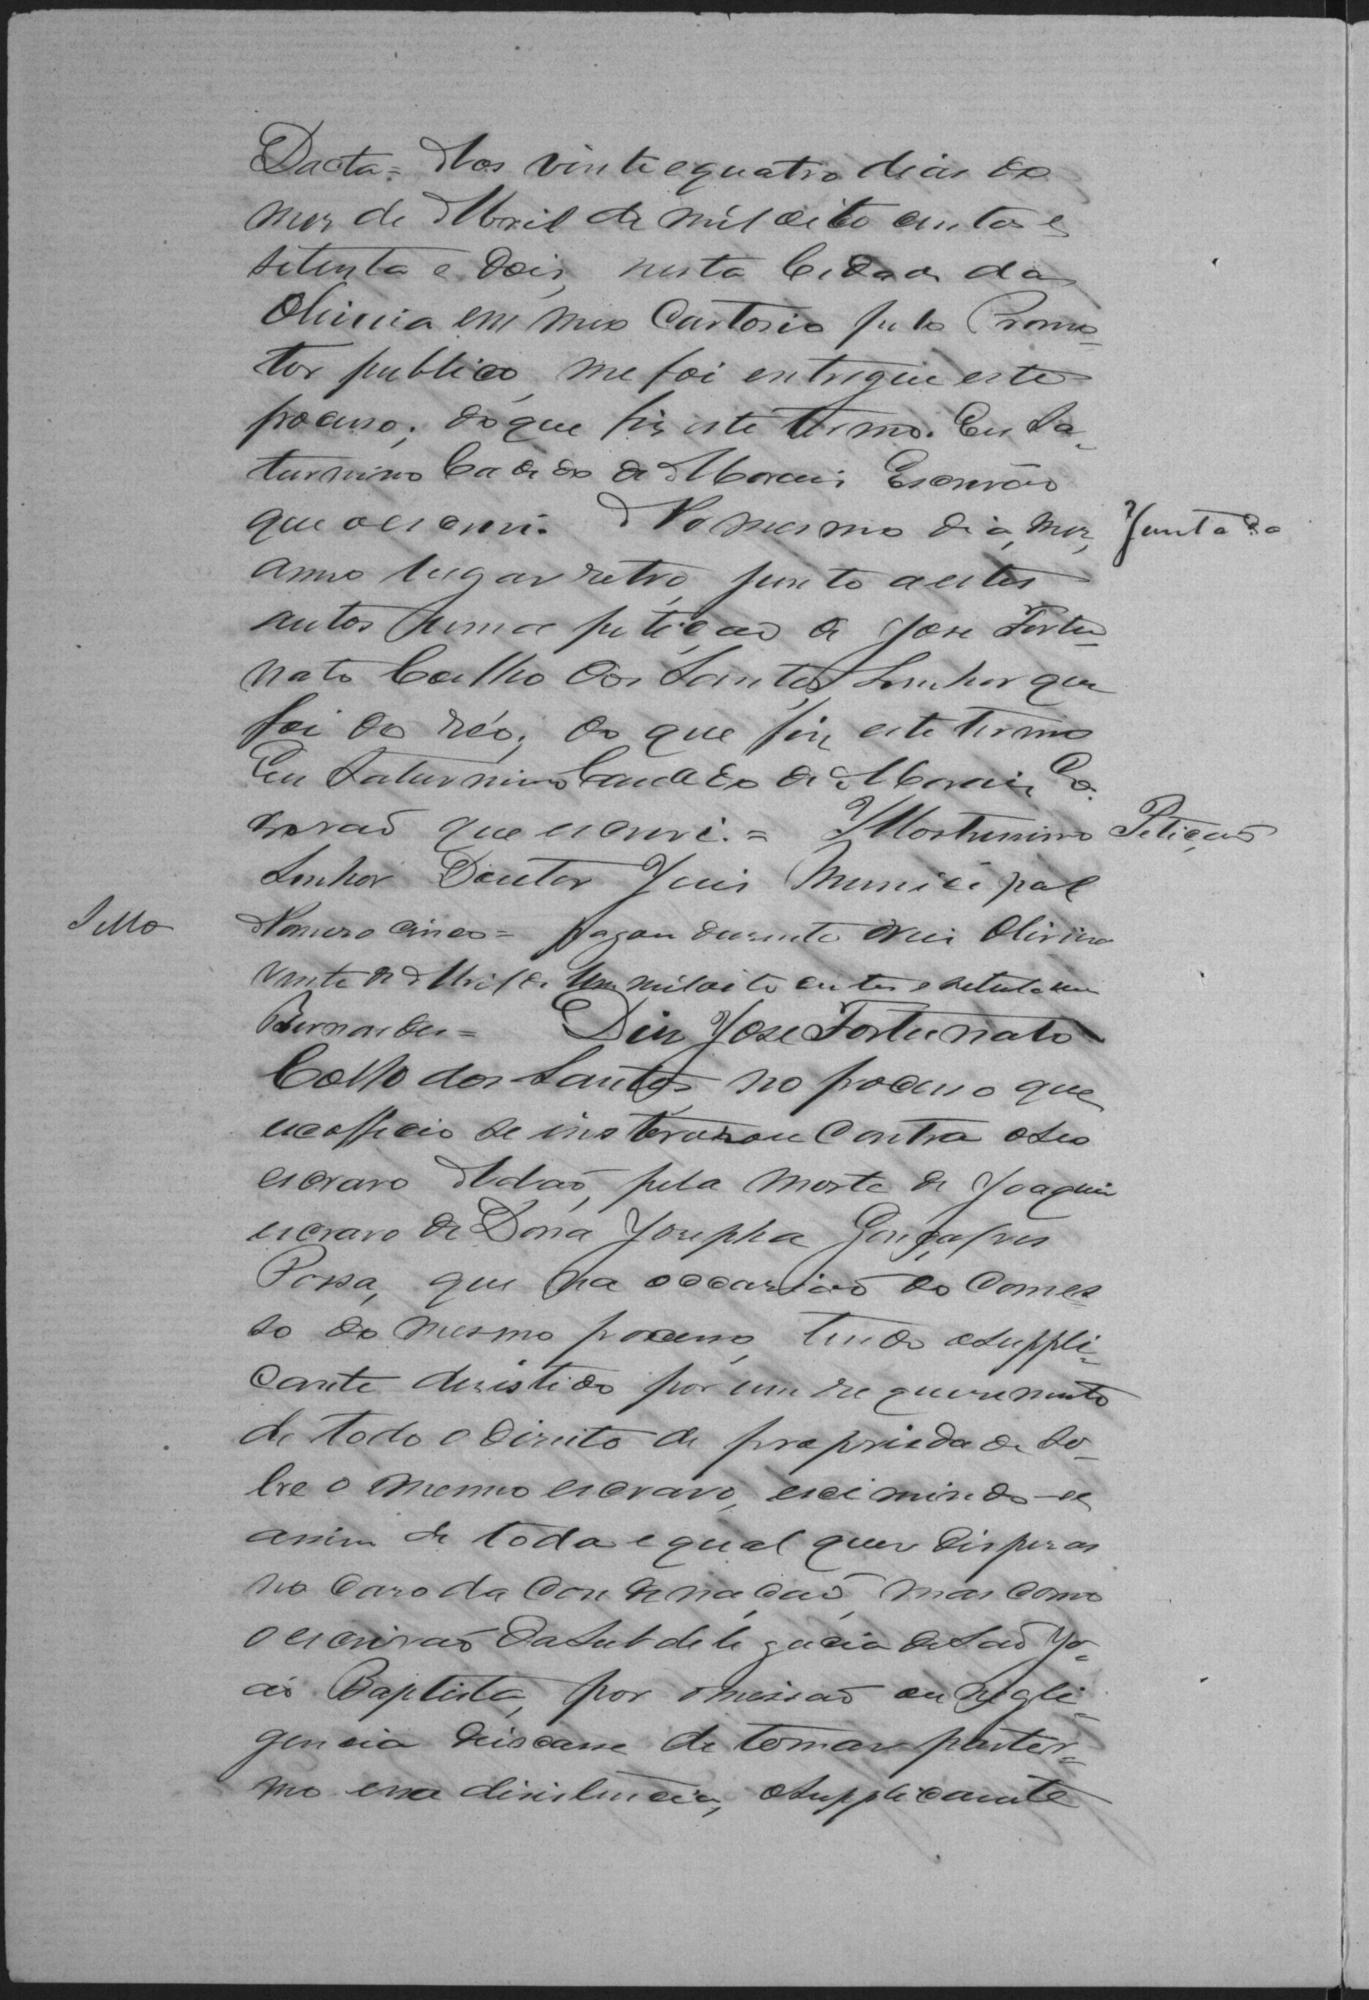 Dacta = Aos vinte equatro dias do
mez de Abril de mil oito centos e
setenta e dois, nesta Cidade da
Oliveira em meo Cartorio pelo Promo-
tor publico, me foi entregue este
processo, do que fiz este termo. Eu Sa-
turnino Candido de Moraes Escrivão
que o escrevi. No mesmo dia, mez, Juntada
anno lugar retro, junto a estes
autos huma petição de José Fortu-
nato Coelho dos Santos, Senhor que
foi do réo; do que fiz este termo
Eu Saturnino Candido de Moraes Es-
crivaõ que escrevi. = Illustrissimo Petiçaõ
Senhor Doutor Juis Municipal
Sello Numero cinco = pagou duzentos reis Oliveira
vinte de Abril de mil oito centos e setenta
Bernardes = Diz José Fortunato
Coelho dos Santos, no processo que
exofficio se instaurou contra o seo
escravo Adaõ, pela morte de Joaquim
escravo de Dona Josepha Gonçalves
Rosa, que na occasiaõ do comes-
so do mesmo processo, tendo o suppli-
cante desistido por um requerimento
de todo o direito de propriedade so-
bre o mesmo escravo, eximindo-se
assim de toda e qual quer dispesas
no caso da condenaçaõ, mas como
o escrivaõ da Subdelegacia de Saõ Jo-
aõ Baptista, por omissaõ ou negli-
gencia deixasse de tomar por ter-
mo essa disistencia, o supplicante